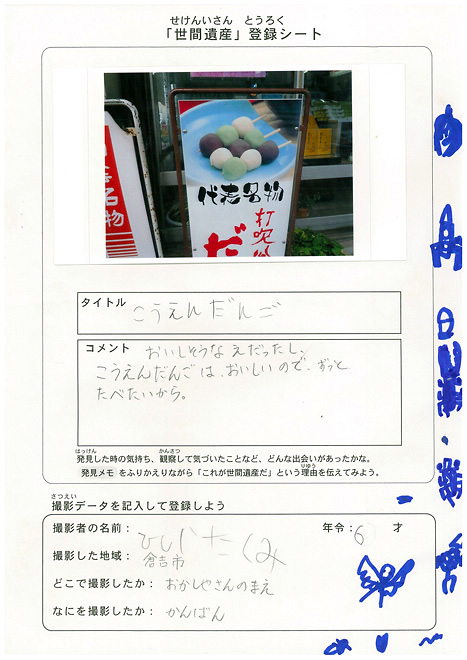 せけんいさん とうろく
「世間遺産」登録シート
名物
代表名物
打吹
だ
タイトル
こうえんだんご
コメント
おいしそうなえだったし、
こうえんだんごは、おいしいので、ずっと
たべたいから。
はっけん かんさつ
発見した時の気持ち、観察して気づいたことなど、どんな出会いがあったかな。
りゆう
発見メモ をふりかえりながら「これが世間遺産だ」という理由を伝えてみよう。
さつえい
撮影データを記入して登録しよう
撮影者の名前： 年令：6 才
撮影した地域： 倉吉市
どこで撮影したか： おかしやさんのまえ
なにを撮影したか： かんばん